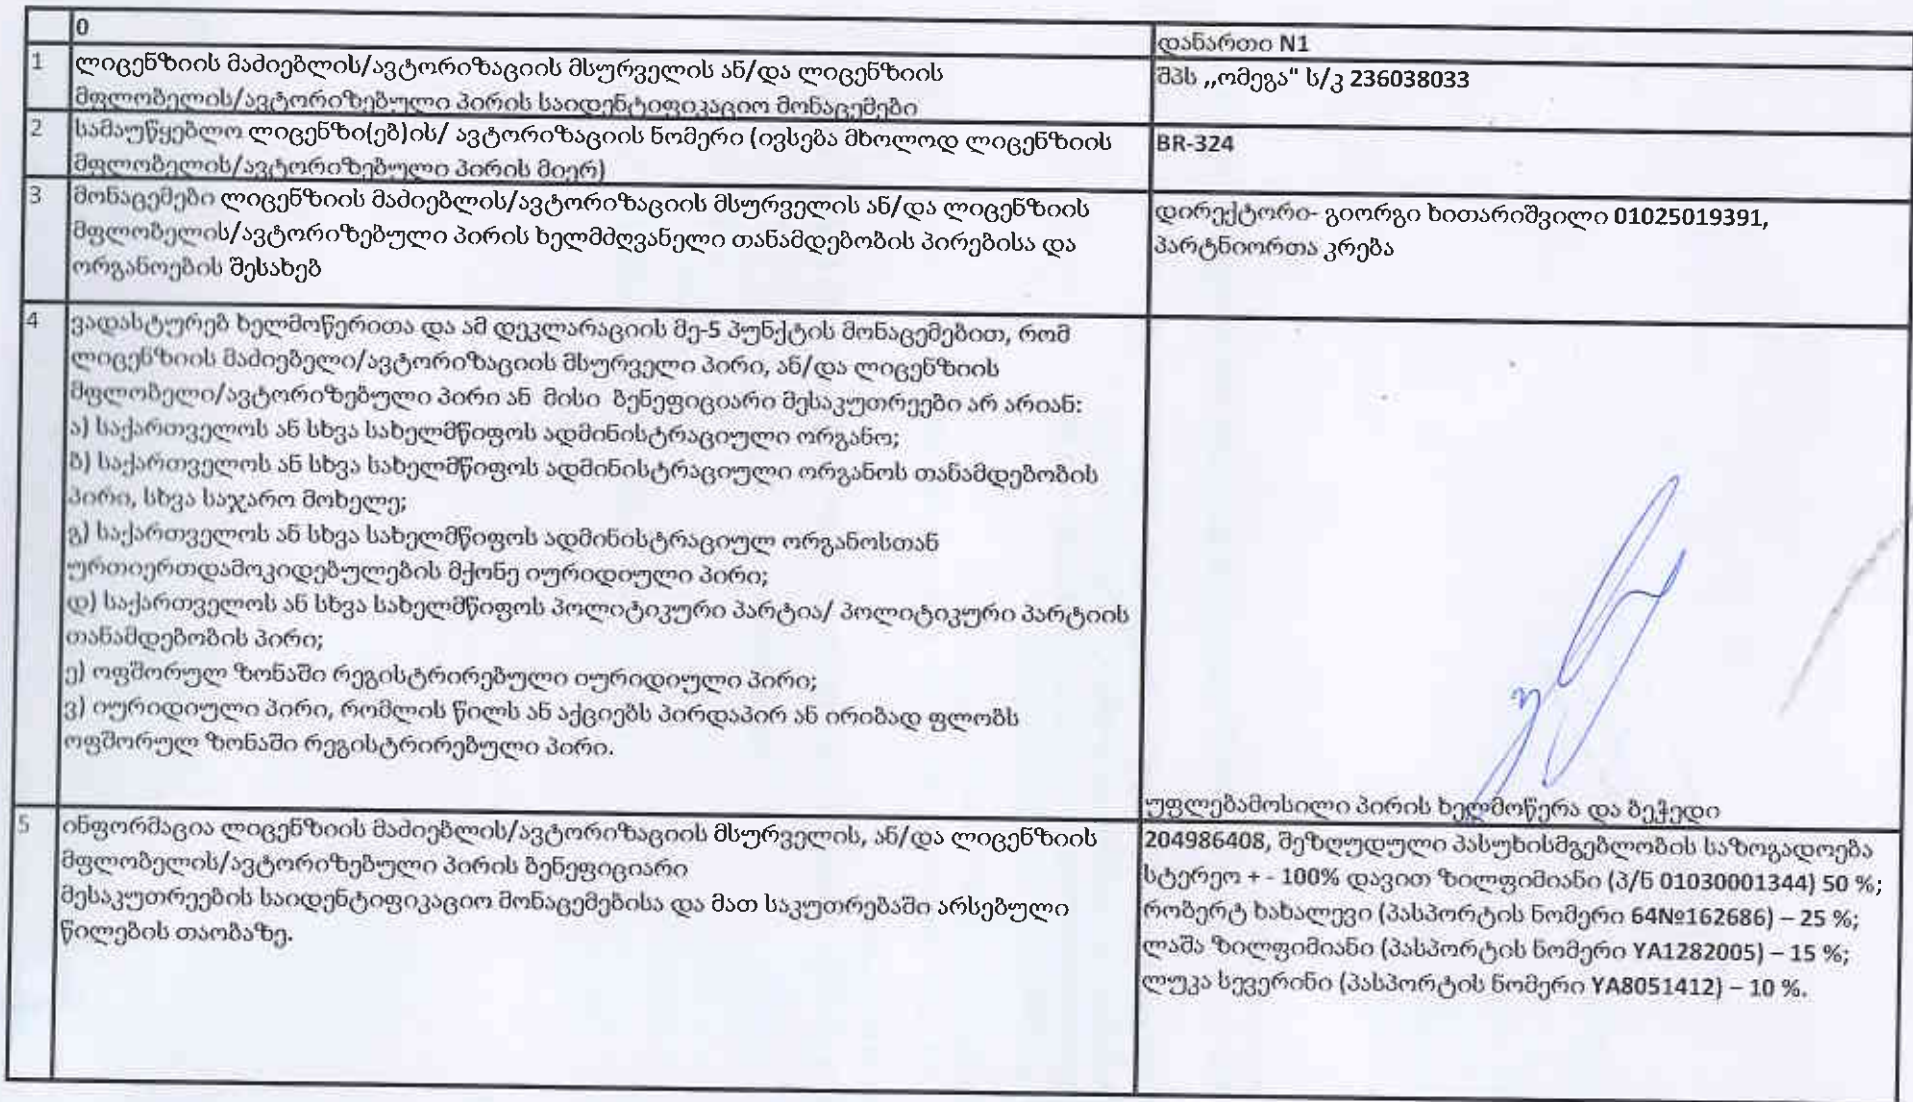 0
დანართი N1
1
ლიცენზიის მაძიებლის/ავტორიზაციის მსურველის ან/და ლიცენზიის
მფლობელის/ავტორიზებული პირის საიდენტიფიკაციო მონაცემები
შპს ,,ომეგა" ს/კ 236038033
2
სამაუწყებლო ლიცენზი(ებ)ის/ ავტორიზაციის ნომერი (ივსება მხოლოდ ლიცენზიის
მფლობელის/ავტორიზებული პირის მიერ)
BR-324
3
მონაცემები ლიცენზიის მაძიებლის/ავტორიზაციის მსურველის ან/და ლიცენზიის
მფლობელის/ავტორიზებული პირის ხელმძღვანელი თანამდებობის პირებისა და
ორგანოების შესახებ
დირექტორი- გიორგი ხითარიშვილი 01025019391,
პარტნიორთა კრება
4
ვადასტურებ ხელმოწერითა და ამ დეკლარაციის მე-5 პუნქტის მონაცემებით, რომ
ლიცენზიის მაძიებელი/ავტორიზაციის მსურველი პირი, ან/და ლიცენზიის
მფლობელი/ავტორიზებული პირი ან მისი ბენეფიციარი მესაკუთრეები არ არიან:
ა) საქართველოს ან სხვა სახელმწიფოს ადმინისტრაციული ორგანო;
ბ) საქართველოს ან სხვა სახელმწიფოს ადმინისტრაციული ორგანოს თანამდებობის
პირი, სხვა საჯარო მოხელე;
გ) საქართველოს ან სხვა სახელმწიფოს ადმინისტრაციულ ორგანოსთან
ურთიერთდამოკიდებულების მქონე იურიდიული პირი;
დ) საქართველოს ან სხვა სახელმწიფოს პოლიტიკური პარტია/ პოლიტიკური პარტიის
თანამდებობის პირი;
ე) ოფშორულ ზონაში რეგისტრირებული იურიდიული პირი;
ვ) იურიდიული პირი, რომლის წილს ან აქციებს პირდაპირ ან ირიბად ფლობს
ოფშორულ ზონაში რეგისტრირებული პირი.
უფლებამოსილი პირის ხელმოწერა და ბეჭედი
5
ინფორმაცია ლიცენზიის მაძიებლის/ავტორიზაციის მსურველის, ან/და ლიცენზიის
მფლობელის/ავტორიზებული პირის ბენეფიციარი
მესაკუთრეების საიდენტიფიკაციო მონაცემებისა და მათ საკუთრებაში არსებული
წილების თაობაზე.
204986408, შეზღუდული პასუხისმგებლობის საზოგადოება
სტერეო + - 100% დავით ზილფიმიანი (პ/ნ 01030001344) 50 %;
რობერტ ხახალევი (პასპორტის ნომერი 64№162686) – 25 %;
ლაშა ზილფიმიანი (პასპორტის ნომერი YA1282005) – 15 %;
ლუკა სევერინი (პასპორტის ნომერი YA8051412) – 10 %.